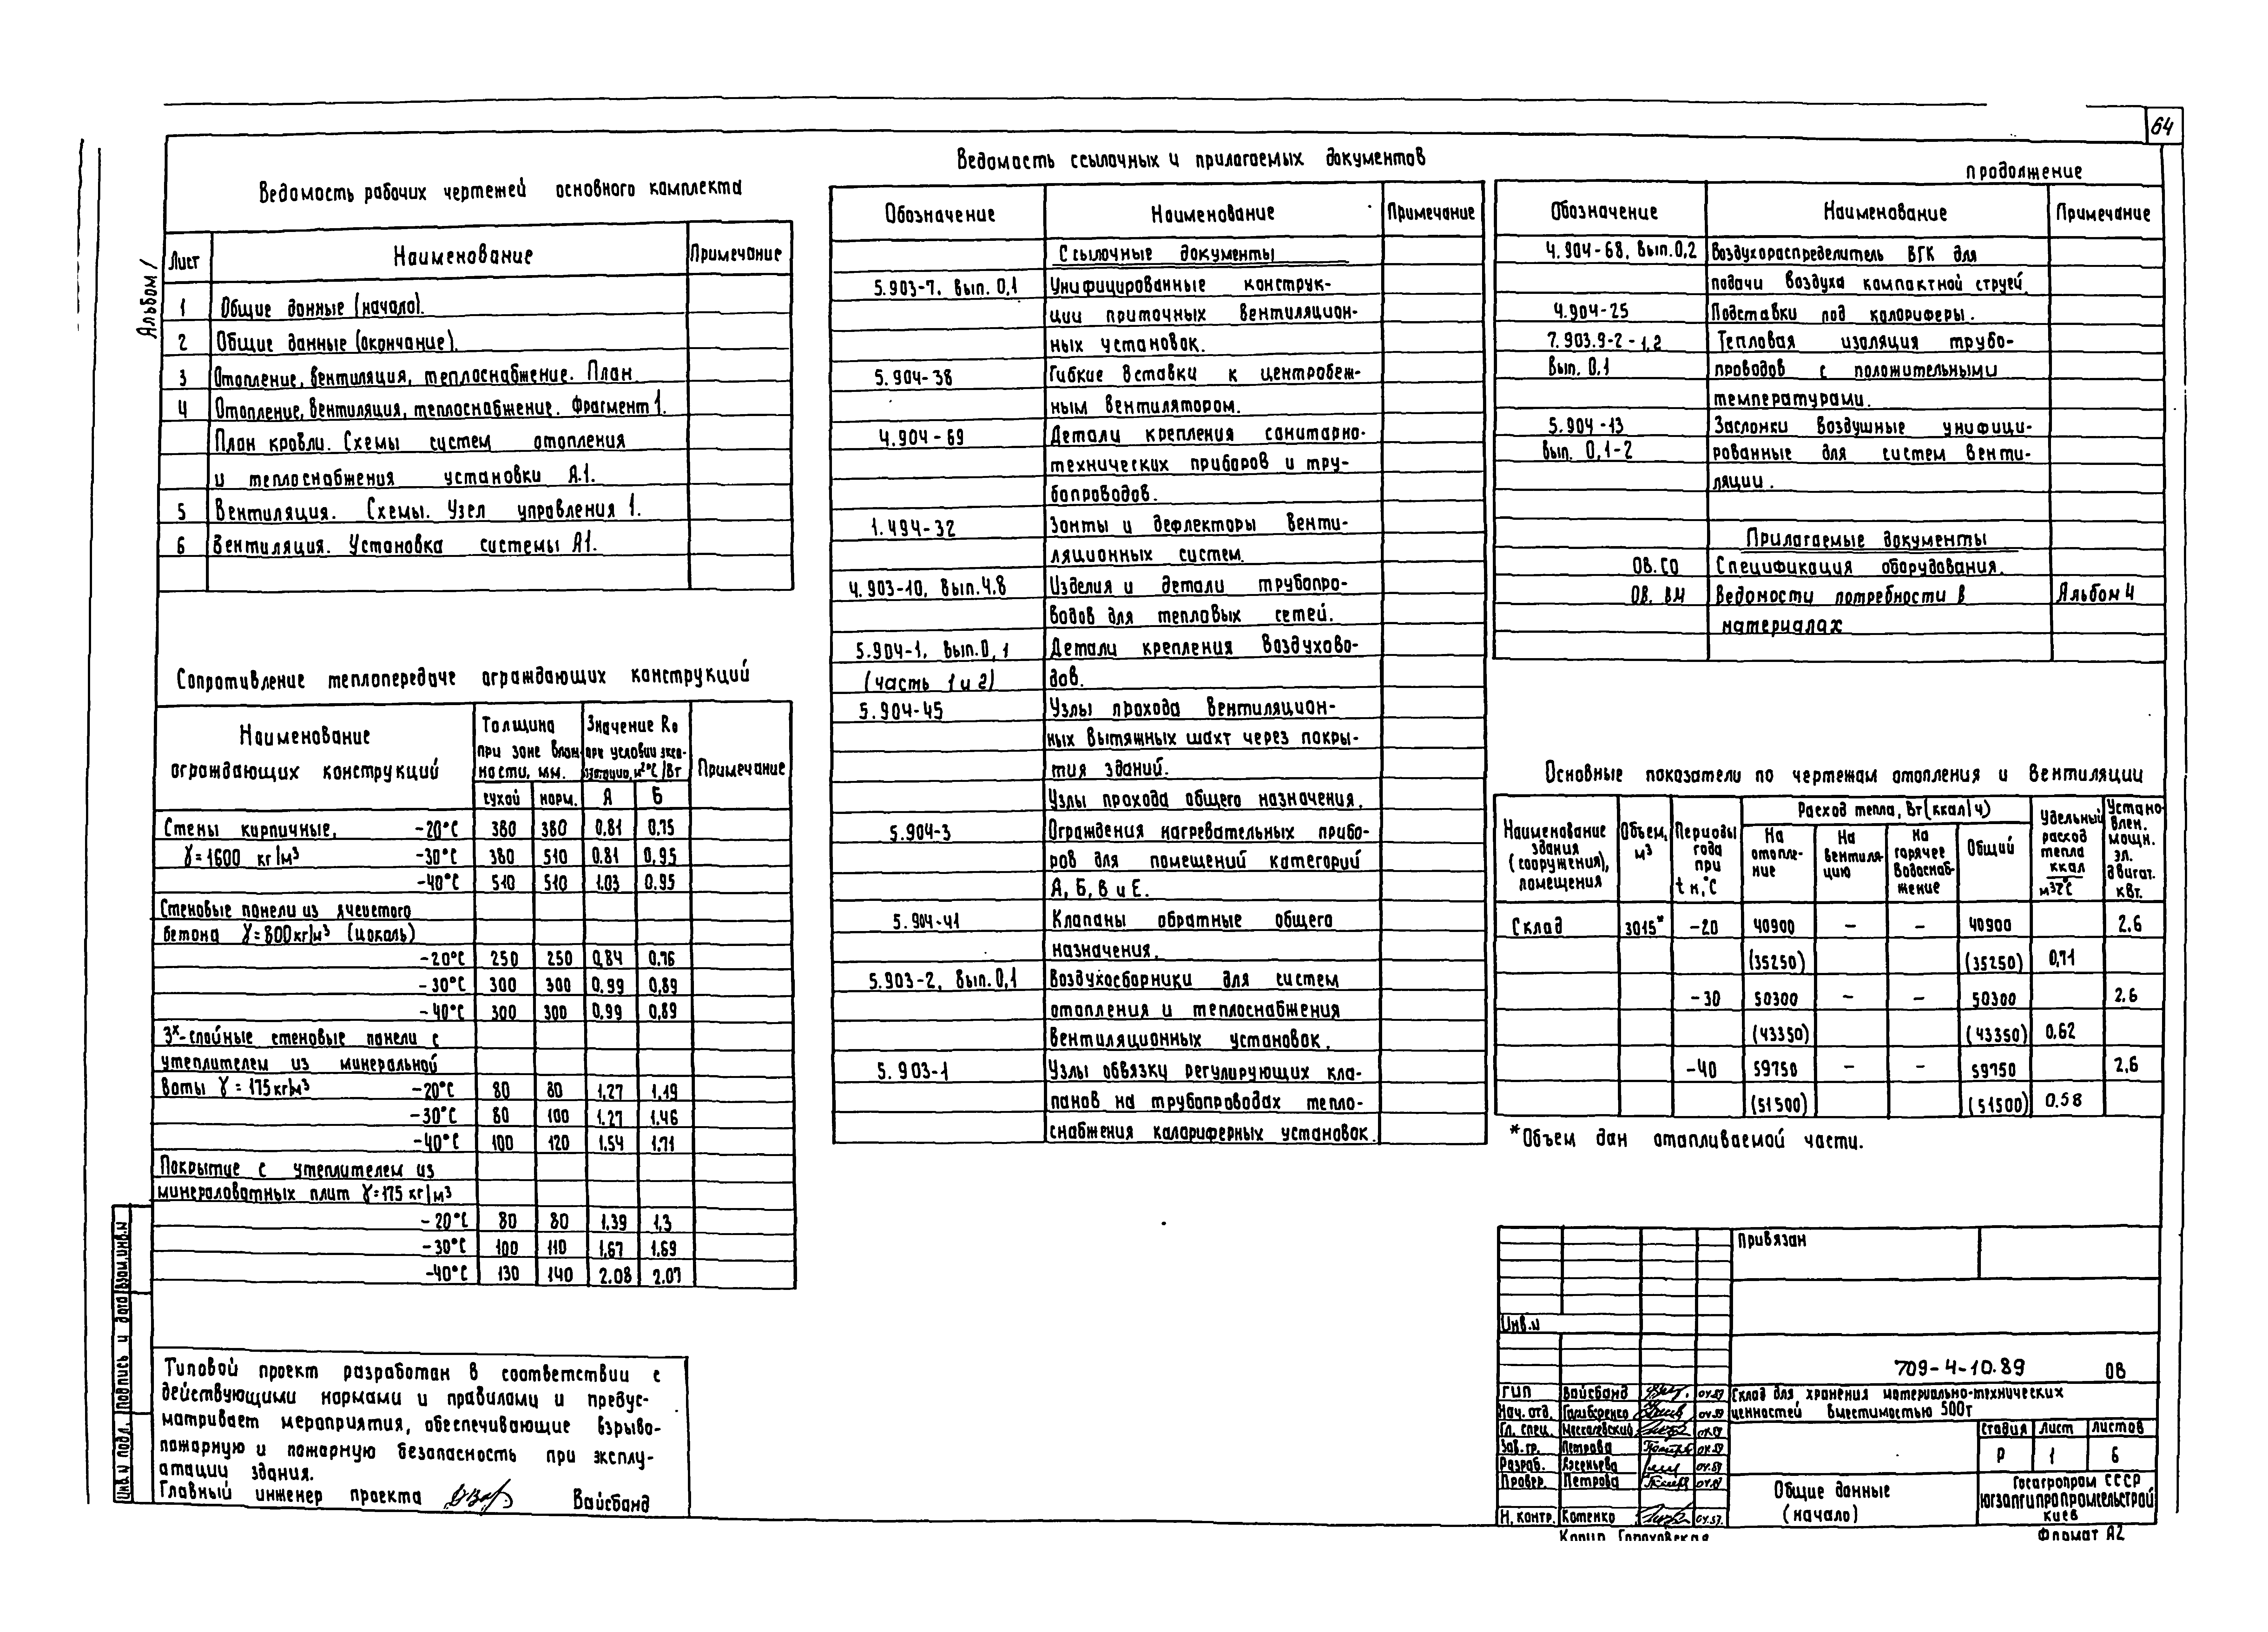 64
Альбом 1
Ведомость рабочих чертежей основного комплекта
Лист Наименование Примечание
1 Общие данные (начало).
2 Общие данные (окончание).
3 Отопление, вентиляция, теплоснабжение. План.
4 Отопление, вентиляция, теплоснабжение. Фрагмент 1.
План кровли. Схемы систем отопления
и теплоснабжения установки А.1.
5 Вентиляция. Схемы. Узел управления 1.
6 Вентиляция. Установка системы А1.
Сопротивление теплопередаче ограждающих конструкций
Наименование ограждающих конструкций
Толщина при зоне влажности, мм.
Значение Ro при условии эксплуатации, м²°С/Вт
Примечание
сухой норм. А Б
Стены кирпичные, -20°С 380 380 0.81 0.75
γ=1600 кг/м³ -30°С 380 510 0.81 0.95
-40°С 510 510 1.03 0.95
Стеновые панели из ячеистого
бетона γ=800кг/м³ (цоколь)
-20°С 250 250 0.84 0.76
-30°С 300 300 0.99 0.89
-40°С 300 300 0.99 0.89
3х-слойные стеновые панели с
утеплителем из минеральной
ваты γ=175кг/м³ -20°С 80 80 1.27 1.19
-30°С 80 100 1.27 1.46
-40°С 100 120 1.54 1.71
Покрытие с утеплителем из
минераловатных плит γ=175 кг/м³
-20°С 80 80 1.39 1.3
-30°С 100 110 1.67 1.69
-40°С 130 140 2.08 2.07
Типовой проект разработан в соответствии с
действующими нормами и правилами и предус-
матривает мероприятия, обеспечивающие взрыво-
пожарную и пожарную безопасность при эксплу-
атации здания.
Главный инженер проекта Вайсбанд
Ведомость ссылочных и прилагаемых документов
Обозначение Наименование Примечание
Ссылочные документы
5.903-7. вып. 0,1 Унифицированные конструк-
ции приточных вентиляцион-
ных установок.
5.904-38 Гибкие вставки к центробеж-
ным вентиляторам.
4.904-69 Детали крепления санитарно-
технических приборов и тру-
бопроводов.
1.494-32 Зонты и дефлекторы венти-
ляционных систем.
4.903-10, вып.4.8 Изделия и детали трубопро-
водов для тепловых сетей.
5.904-1, вып.0,1 Детали крепления воздухово-
(часть 1 и 2) дов.
5.904-45 Узлы прохода вентиляцион-
ных вытяжных шахт через покры-
тия зданий.
Узлы прохода общего назначения.
5.904-3 Ограждения нагревательных прибо-
ров для помещений категорий
А, Б, В и Е.
5.904-41 Клапаны обратные общего
назначения.
5.903-2, вып.0,1 Воздухосборники для систем
отопления и теплоснабжения
вентиляционных установок.
5.903-1 Узлы обвязку регулирующих кла-
панов на трубопроводах тепло-
снабжения калориферных установок.
продолжение
Обозначение Наименование Примечание
4.904-68, вып.0,2 Воздухораспределитель ВГК для
подачи воздуха компактной струей.
4.904-25 Подставки под калориферы.
7.903.9-2-1,2 Тепловая изоляция трубо-
Вып. 0.1 проводов с положительными
температурами.
5.904-13 Заслонки воздушные унифици-
вып. 0,1-2 рованные для систем венти-
ляции.
Прилагаемые документы
ОВ.СО Спецификация оборудования.
ОВ. ВМ Ведомости потребности в Альбом 4
материалах
Основные показатели по чертежам отопления и вентиляции
Наименование здания (сооружения), помещения
Объем, м³
Периоды года при tн,°С
Расход тепла, Вт(ккал/ч)
На отопле-ние
На вентиля-цию
на горячее водоснаб-жение
Общий
Удельный расход тепла ккал м³ч°С
Устано-влен. мощн. эл. двигат. квт.
Склад 3015* -20 40900 - - 40900 2.6
(35250) (35250) 0,71
-30 50300 - - 50300 2.6
(43350) (43350) 0.62
-40 59750 - - 59750 2,6
(51500) (51500) 0.58
*Объем дан отапливаемой части.
Привязан
Инв.н
709-4-10.89 ОВ
ГИП Вайсбанд 04.89
Нач. отд. 04.89
Гл. спец. Москалевский
Зав. гр. Петрова 04.89
Разраб. 04.89
Провер. Петрова 04.89
Н. контр. Котенко
Склад для хранения материально-технических
ценностей вместимостью 500т
стадия лист листов
Р 1 6
Общие данные
(начало)
Госагропром СССР
Югзапгипропромсельстрой
Киев
Копир Гороховская
Формат А2
Инв.N подл. Подпись и дата Взам.инв.N